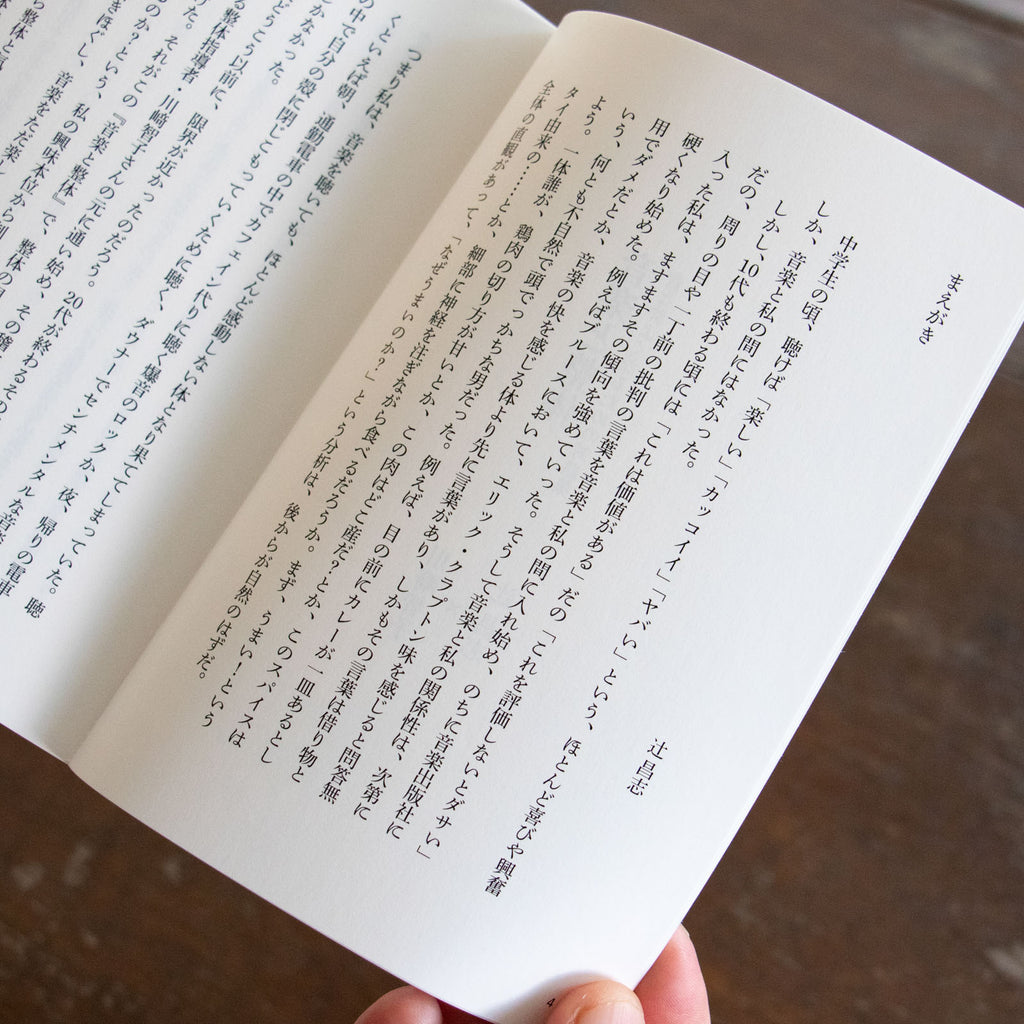 まえがき
辻 昌志
中学生の頃、聴けば「楽しい」「カッコイイ」「ヤバい」という、ほとんど喜びや興奮
しか、音楽と私の間にはなかった。
しかし、10代も終わる頃には「これは価値がある」だの「これを評価しないとダサい」
だの、周りの目や一丁前の批判の言葉を音楽と私の間に入れ始め、のちに音楽出版社に
入った私は、ますますその傾向を強めていった。そうして音楽と私の関係性は、次第に
硬くなり始めた。例えばブルースにおいて、エリック・クラプトン味を感じると問答無
用でダメだとか、音楽の快を感じる体より先に言葉があり、しかもその言葉は借り物と
いう、何とも不自然で頭でっかちな男だった。例えば、目の前にカレーが一皿あるとし
よう。一体誰が、鶏肉の切り方が甘いとか、この肉はどこ産だ?とか、このスパイスは
タイ由来の……とか、細部に神経を注ぎながら食べるだろうか。まず、うまい!という
全体の直観があって、「なぜうまいのか?」という分析は、後からが自然のはずだ。
4
つまり私は、音楽を聴いても、ほとんど感動しない体となり果ててしまっていた。聴
くといえば朝、通勤電車の中でカフェイン代りに聴く爆音のロックか、夜、帰りの電車
の中で自分の殻に閉じこもっていくために聴く、ダウナーでセンチメンタルな音楽
かなかった。
どうこう以前に、限界が近かったのだろう。20代が終わるその
る整体指導者・川﨑智子さんの元に通い始め、その稽
た。それがこの『音楽と整体』で、整体の
のか?という、私の興味本位から
ほぐし、音楽をただ楽し
整体と